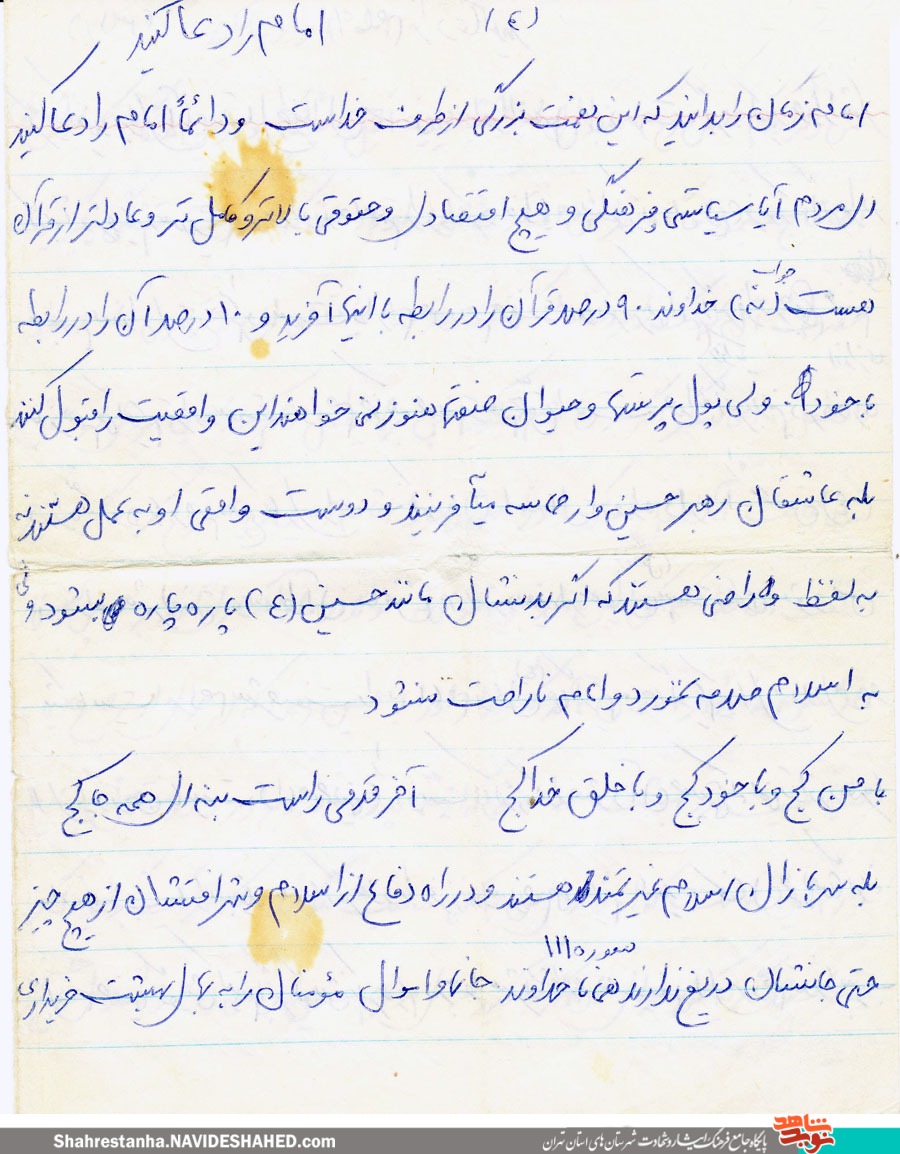 (٤)
امام را دعا کنید
امام زمان را بدانید که این نعمت بزرگی از طرف خداست و دائماً امام را دعا کنید
ای مردم آیا سیاستی فرهنگی و هیچ اقتصادی و حقوقی بالاتر و کامل تر و عادلتر از قرآن
جواب
هست (نه) خداوند ۹۰ درصد قرآن را در رابطه با اینها آفرید و ۱۰ درصد آن را در رابطه
با خود. ولی پول پرستها و حیوان صفتها هنوز نمی خواهند این واقعیت را قبول کنند
بله عاشقان رهبر حسین وار حماسه میآفرینند و دوست واقعی او به عمل هستند نه
به لفظ و راضی هستند که اگر بدنشان مانند حسین (ع) پاره پاره بشود ولی
به اسلام صدمه نخورد و امام ناراحت نشود
با من کج و با خود کج و با خلق خدا کج آخر قدمی راست بنه ای همه جا کج
بله سربازان اسلام غیرتمند هستند و در راه دفاع از اسلام و شرافتشان از هیچ چیز
سوره ۱۱۱
حتی جانشان دریغ ندارند همانا خداوند جانها و اموال مؤمنان را به بهای بهشت خریداری
Shahrestanha.NAVIDESHAHED.com
پایگاه جامع فرهنگ ایثار و شهادت شهرستان های استان تهران
نوید شاهد